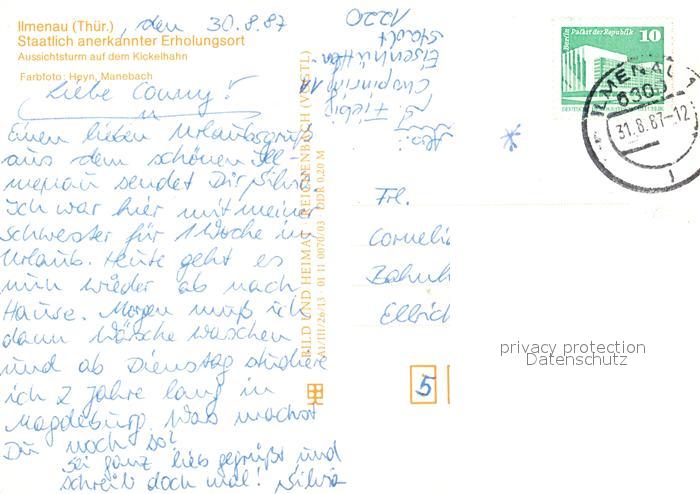 Ilmenau (Thür.) , den 30.8.87
Staatlich anerkannter Erholungsort
Aussichtsturm auf dem Kickelhahn
Farbfoto: Heyn, Manebach
Liebe Conny!
Einen lieben Urlaubsgruß
aus dem schönen Ill-
menau sendet Dir Silvia.
Ich war hier mit meiner
Schwester für 1 Woche im
Urlaub. Heute geht es
nun wieder ab nach
Hause. Morgen muß ich
dann Wäsche waschen
und ab Dienstag studiere
ich 2 Jahre lang in
Magdeburg. Was machst
Du noch so?
Sei ganz lieb gegrüßt und
schreib doch mal! Silvia
BILD UND HEIMAT REICHENBACH (VOGTL)
A1/III/26/13 01 11 0070/03 DDR 0,20 M
Abs.:
S. Fiebig
Chopinring 14
Eisenhütten-
stadt
1220
*
Berlin Palast der Republik 10
ILMENAU 1
6300
31.8.87-12
Frl.
Cornelia
Bahnh
Ellrich
5
privacy protection
Datenschutz